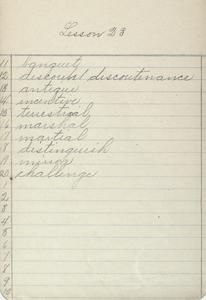 Lesson 23
11 banquet
12 discount discountenance
13 antique
14 incentive
15 terrestrial
16 marshal
17 martial
18 distinguish
19 mirror
20 challenge
1
2
3
4
5
6
7
8
9
10